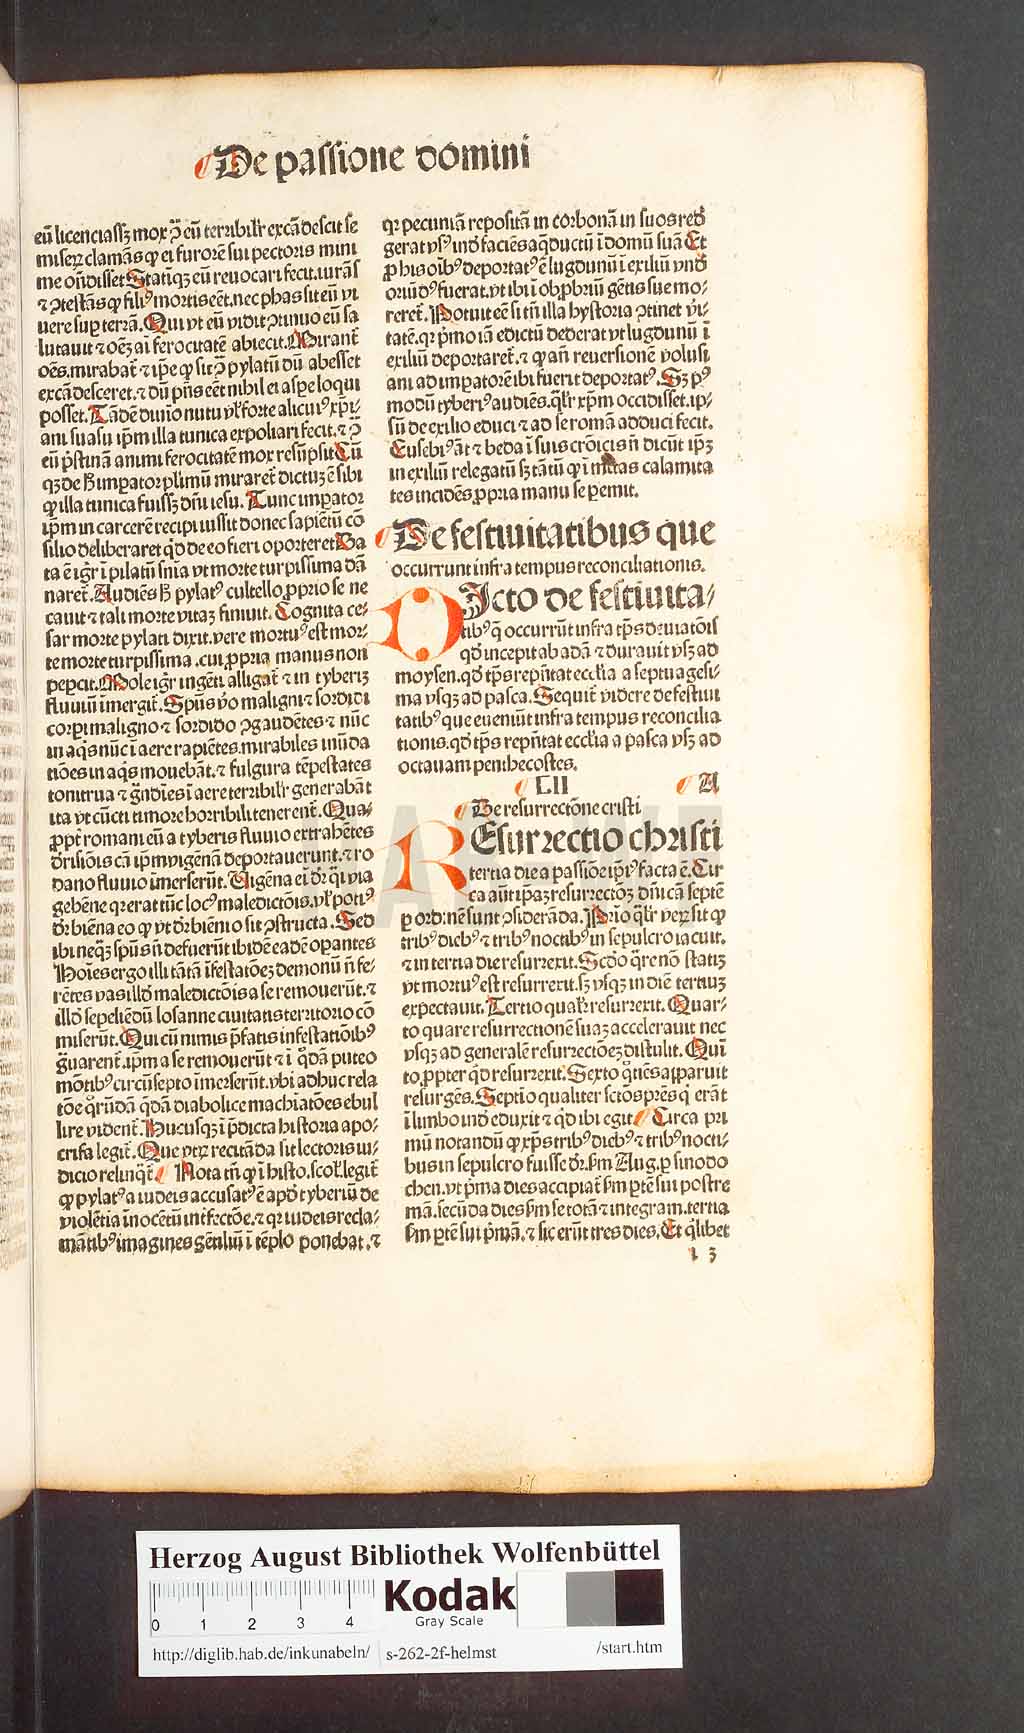 De passione domini
eū licenciassꝫ mox ↄ̄ eū terribilr̄ excādescit se
miseꝝ clamās ꝙ ei furorē sui pectoris mini
me on̄disset Statiqꝫ eū reuocari fecit. iurās
⁊ ↄtestās ꝙ fili⁹ mortis eēt. nec phas sit eū vi
uere suꝑ terrā. Qui vt eū vidit ↄtinuo eū sa
lutauit ⁊ oēꝫ ai ferocitatē abiecit. Mirant̄
oēs. mirabat̄ ⁊ ip̄e ꝙ sit ↄ̄ pylatū dū abesset
excādesceret. ⁊ dū p̄ns eēt nihil ei aspe loqui
posset. Tādē diuīo nutu vl̓ forte alicui⁹ xp̄i-
ani suasu ip̄m illa tunica expoliari fecit. ⁊ ↄ̄
eū p̄stinā animi ferocitatē mox resūpsit Cū
qꝫ de h̄ imꝑator pl̓imū miraret̄ dictuꝫ ē sibi
ꝙ illa tunica fuissꝫ dn̄i iesu. Tunc imꝑator
ip̄m in carcerē recipi iussit donec sapiētū cō
silio deliberaret qd̓ de eo fieri oporteret Da
ta ē igr̄ ī pilatū sn̄ia vt morte turpissima dā
naret̄. Audiēs h̄ pylat⁹ cultello ꝓprio se ne
cauit ⁊ tali morte vitaꝫ finiuit. Cognita ce-
sar morte pylati dixit. vere mortu⁹ est mor-
te morte turpissima. cui ꝓpria manus non
peꝑcit. Mole igr̄ ingēti alligat̄ ⁊ in tyberiꝫ
fluuiū imergit̄. Spūs v̓o maligni ⁊ sordidi
corpi maligno ⁊ sordido ↄgaudētes ⁊ nūc
in aq̄s nūc ī aere rapiētes. mirabiles inūda
tiōes in aq̄s mouebāt. ⁊ fulgura tēpestates
tonitrua ⁊ g̓ndīes ī aere terribilr̄ generabāt
ita vt cūcti timore horribili tenerent̄. Qua-
ꝓpt̓ romani eū a tyberis fluuio extrahētes
d̓risiōis cā ip̄m vigēnā deportauerunt. ⁊ ro
dano fluuio īmerserūt. Uigēna ei d̓r q̄i via
gebēne qr erat tūc loc⁹ maledictōis. vl̓ poti⁹
d̓r biēna eo ꝙ vt d̓r biēnio sit ↄstructa. Sed
ibi neqꝫ spūs n̄ defuerūt ibidē eadē oꝑantes
Hoīes ergo illi tātā īfestatōeꝫ demonū n̄ fe-
rētes vas illd̓ maledictōis a se remouerūt. ⁊
illd̓ sepeliēdū losanne ciuitatis territorio cō
miserūt. Qui cū nimis p̄fatis infestatiōib⁹
g̓uarent̄. ip̄m a se remouerūt ⁊ ī q̄dā puteo
mōtib⁹ circūsepto imerserūt. vbi adhuc rela
tōe q̄rūdā q̄dā diabolice machīatōes ebul
lire vident̄. Hucusqꝫ ī p̄dicta historia apo-
crifa legit̄. Que vtꝝ recitāda sit lectoris iu-
dicio relinq̄t̄. Nota tn̄ ꝙ ī histo. scol̓. legit̄
ꝙ pylat⁹ a iudeis accusat⁹ ē apd̓ tyberiū de
violētia īnocētū int̓fectōe. ⁊ qr iudeis recla-
mātib⁹ imagines gētiliū ī tēplo ponebat. ⁊
qr pecuniā repositā in corbonā in suos red̓
gerat vs⁹ īnd̓ faciēs aq̄ductū ī domū suā Et
ꝓ his oīb⁹ deportat⁹ ē lugdunū ī exiliū vnd̓
oriūd⁹ fuerat. vt ibi ī obꝓbriū gētis sue mo-
reret̄. Potuit eē si tn̄ illa hystoria ↄtinet v̓i-
tatē. qr p̄mo iā edictū dederat vt lugdunū ī
exiliū deportaret̄. ⁊ ꝙ an̄ reuersionē volusi
ani ad imꝑatorē ibi fuerit deportat⁹. Sꝫ p⁹
modū tyberi⁹ audiēs. qlr̄ xp̄m occidisset. ip-
sū de exilio educi ⁊ ad se romā adduci fecit.
Eusebi⁹ āt ⁊ beda ī suis crōicis n̄ dicūt ip̄ꝫ
in exiliū relegatū sꝫ tātū ꝙ ī mltas calamita
tes incidēs ꝓpria manu se ꝑemit.
De festiuitatibus que
occurrunt infra tempus reconciliationis.
DIcto de festiuita-
tib⁹ q̄ occurrūt infra tp̄s deuiatōis
qd̓ incepit ab adā ⁊ durauit vsꝫ ad
moysen. qd̓ tp̄s rep̄ntat eccl̓ia a septuagesi-
ma vsqꝫ ad pasca. Sequit̄ videre de festiui
tatib⁹ que eueniūt infra tempus reconcilia
tionis. qd̓ tp̄s rep̄ntat eccl̓ia a pasca vsꝫ ad
octauam penthecostes.
LII A
De resurrectōne cristi
REsurrectio christi
tertia die a passiōe ip̄i⁹ facta ē. Cir
ca aūt ip̄aꝫ resurrectōꝫ dn̄icā septē
ꝑ ordinē sunt ↄsiderāda. Prīo qlr̄ veꝝ sit ꝙ
trib⁹ dieb⁹ ⁊ trib⁹ noctib⁹ in sepulcro iacuit.
⁊ in tertia die resurrexit. Scd̓o q̄re nō statiꝫ
vt mortu⁹ est resurrexit. sꝫ vsqꝫ in diē tertiuꝫ
expectauit. Tertio qualr̄ resurrexit. Quar-
to quare resurrectionē suaꝫ accelerauit nec
vsqꝫ ad generalē resurrectōeꝫ distulit. Quī
to. ꝓpter qd̓ resurrexit. Sexto q̄tiēs apparuit
resurgēs. Septīo qualiter sctōs pr̄es q̓ erāt
ī limbo ind̓ eduxit ⁊ qd̓ ibi egit Circa pri
mū notandū ꝙ xp̄s trib⁹ dieb⁹ ⁊ trib⁹ nocti-
bus in sepulcro fuisse d̓r. sm̄ Aug. ꝑ sinodo
chen. vt p̄ma dies accipiat̄ sm̄ ꝑtē sui postre
mā. secūda dies sm̄ se totā ⁊ integram. tertia
sm̄ ꝑtē sui p̄mā. ⁊ sic erūt tres dies. Et q̄libet
l 3
Herzog August Bibliothek Wolfenbüttel
0 1 2 3 4
Kodak
Gray Scale
http://diglib.hab.de/inkunabeln/ s-262-2f-helmst /start.htm